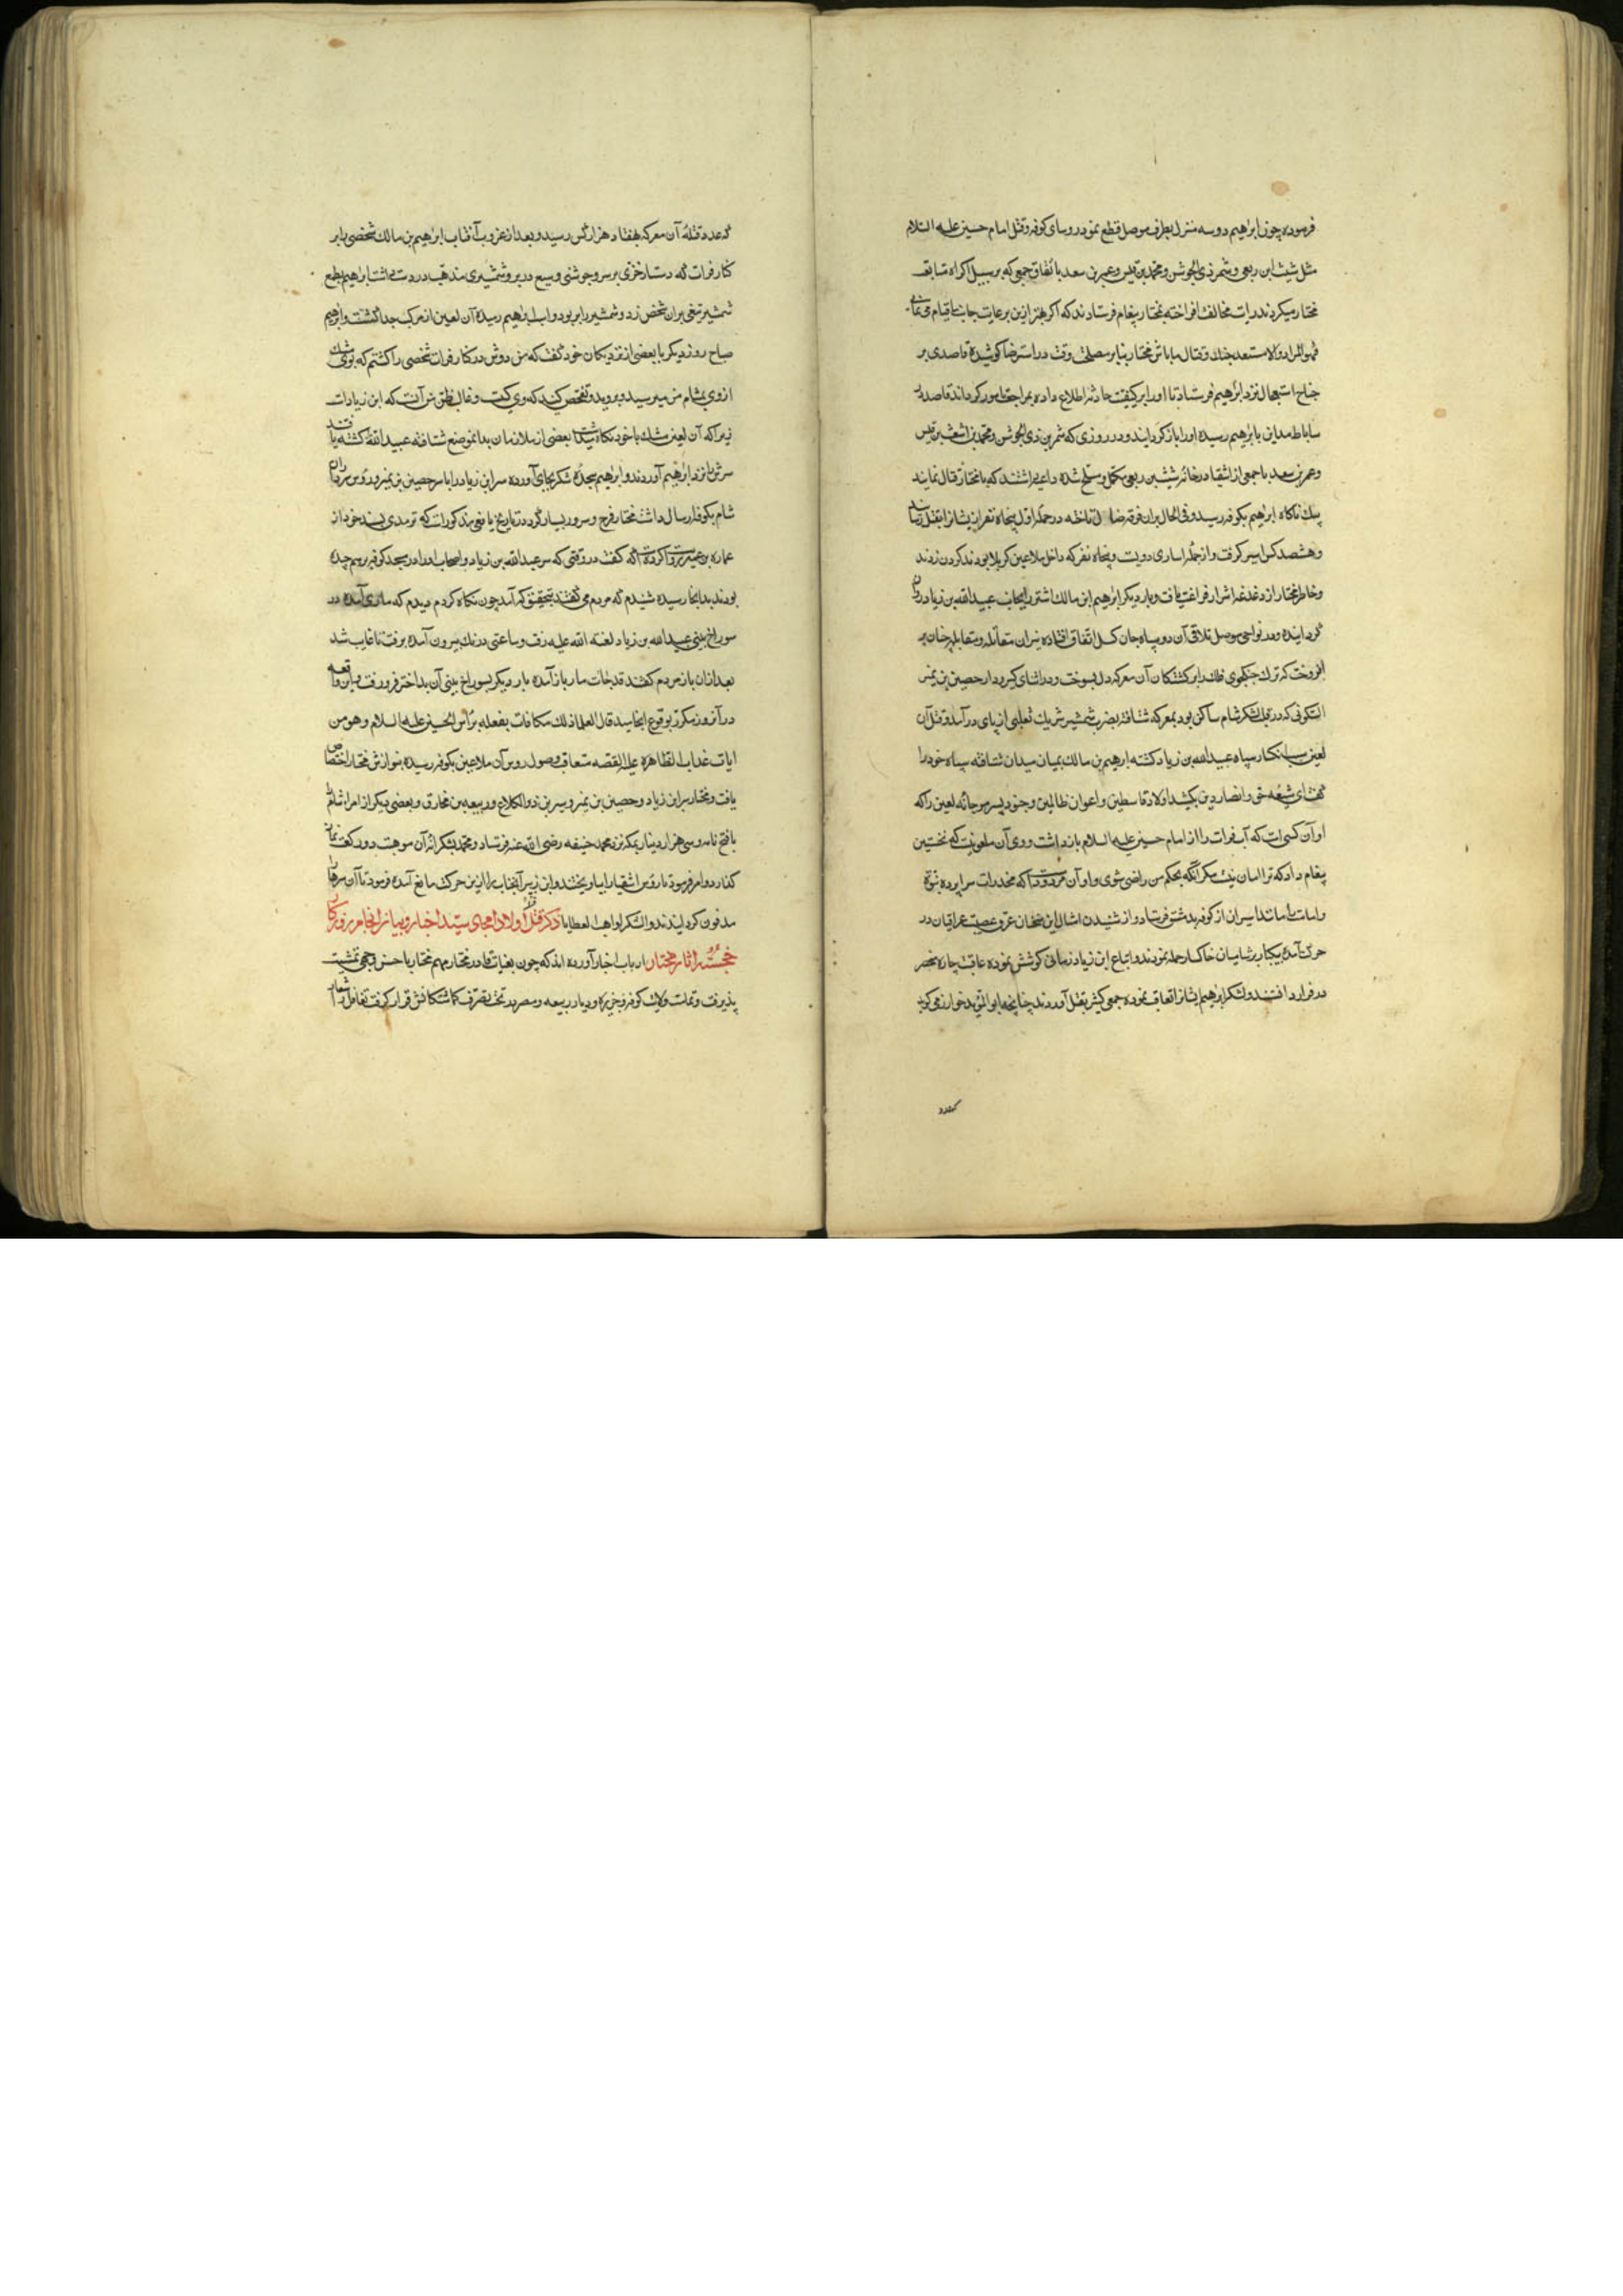 فرموده چون ابراهیم دوسه منزل بطرف موصل قطع نمود روسای کوفه و قتل امام حسین علیه السلام
مثل شیث ابن ربعی و شمر ذی الجوشن و محمد بن قیس و عمر بن سعد باتفاق جمعی که بر سبیل اکراه متابعت
مختار میکردند رایت مخالفت افراخته بمختار پیغام فرستادند که اگر
فهو المراد والا مستعد جنک و قتال ما باش مختار بنابر مصلحت وقت در استرضا کوشیده قاصدی بر
جناح استعجال نزد ابراهیم فرستاد تا اورا بر کیفیت حادثه اطلاع داده بمراجعت مامور کرداند قاصد در
ساباط مداین بابراهیم رسیده اورا باز کردانید و در روزی که شمر بن ذی الجوشن و محمد بن اشعث بن قیس
و عمر بن سعد با جمعی از اشقیا در خانه شیث بن ربعی مکمل و مسلح شده داعیه داشتند که با مختار قتال نمایند
بیک ناکاه ابراهیم بکوفه رسید و فی الحال بران فرقه ضال تاخته در حمله اول پنجاه نفر از ایشانرا بقتل رسانید
و هشصد کس اسیر کرفت و از جمله اساری دویست و پنجاه نفر که داخل ملاعین کربلا بودند کردن زدند
و خاطر مختار از دغدغه اشرار فراغت یافت و بار دیکر ابراهیم ابن مالک اشتر را بجانب عبید الله بن زیاد روان
کردانید و در نواحی موصل تلاقی آن دو سپاه جان کسل اتفاق افتاده نیران مقاتله و مقابله چنان بر
افروخت که ترک جنکجوی فلک را بر کشتکان آن معرکه دل بسوخت و در اثنای کیرودار حصین بن نمیر
السکونی که در قلب لشکر شام ساکن بود بمعرکه شتافته بضرب شمشیر شریک ثعلبی از پای درآمد و قتل آن
لعین سبب انکسار سپاه عبیدالله بن زیاد کشته ابراهیم بن مالک بمیان میدان شتافته سپاه خود را
کفت ای شیعه حق و انصار دین بکشید اولاد قاسطین و اعوان ظالمین و جنود پسر مرجانه لعین را که
او آن کسی است که آب فرات را از امام حسین علیه السلام بازداشت و وی آن ملعونیست که نخستین
پیغام داد که ترا امان نیست مکر آنکه بحکم من راضی شوی و او آن مردودیست که مخدرات سراپرده نبوة
و امامت را مانند اسیران از کوفه بدمشق فرستاد و از شنیدن امثال این سخنان عرق عصبیت عراقیان در
حرکت آمده بیکبار بر شامیان خاکسار حمله نمودند و اتباع ابن زیاد زمانی کوشش نموده عاقبت چاره منحصر
در فرار دانستند و لشکر ابراهیم ایشانرا تعاقب نموده جمعی کثیر بقتل آوردند چنانچه ابو المؤید خوارزمی کوید
که عدد
که عدد قتله آن معرکه بهفتاد هزار کس رسید و بعد از غروب آفتاب ابراهیم بن مالک شخصی را بر
کنار فرات که دستار خزی بر سر و جوشنی وسیع در بر و شمشیری مذهب در دست داشت ابراهیم بطمع
شمشیر تیغی بران شخص زد و شمشیر را بربود و
صباح روز دیکر با بعضی از نزدیکان خود کفت که من دوش در کنار فرات شخصی را کشتم که بوی مشک
از وی بمشام من میرسید بروید و تفحص کنید که وی کیست و غالب ظن من آنست که ابن زیادست
زیرا که آن لعین مشک با خود نکاه میداشت بعضی از ملازمان بدانموضع شتافته عبید الله را کشته یافتند
سرش را نزد ابراهیم آوردند و ابراهیم سجده شکر بجای آورده سر ابن زیاد را با سر حصین بن نمیر و روس سرداران
شام بکوفه ارسال داشت مختار فرح و سرور بسیار کرد و در تاریخ یافعی مذکورست که ترمدی بسند خود از
عماره بن عمیر روایت کرده است که کفت در وقتی که سر عبید الله بن زیاد و اصحاب او را در مسجد کوفه برهم چیده
بودند بدانجا رسیده شنیدم که مردم می کفتند بتحقیق که آمد چون نکاه کردم دیدم که ماری آمده در
سوراخ بینی عبید الله بن زیاد لعنه الله علیه رفت و ساعتی درنک بیرون آمده برفت تا غایب شد
بعد ازان باز مردم کفتند قد جات مار باز آمده بار دیکر بسوراخ بینی آن بداختر فرو رفت و این واقعه
در آنروز مکرر بوقوع انجامید قال العلما ذلک مکافات بفعله براس الحسین علیه السلام وهو من
ایات عذاب الظاهره علیه القصه متعاقب وصول روس آن ملاعین بکوفه رسیده بنوازش مختار اختصاص
یافت و مختار سر ابن زیاد و حصین بن نمیر و سر بن ذو الکلاع و ربیعه بن مخارق و بعضی دیکر از امراء شام
با فتح نامه و سی هزار دینار بمکه نزد محمد حنیفه رضی الله عنه فرستاد و محمد بشکرانه آن موهبت دو رکعت نماز
کذارد و امر فرمود تا روس اشقیا را بیاویختند و ابن زبیر آنجناب را ازین حرکت مانع آمده فرمود تا آن سرها را
مدفون کردانیدند والشکر لواهب العطایا ذکر قتل اولاد امجاد سید اخیار و بیان انجام روزکار
خجسته آثار مختار ارباب اخبار آورده اند که چون بعنایت قادر مختار مهم مختار باحسن وجهی تمشیت
پذیرفت و تمامت ولایت کوفه و جزیره و دیار ربیعه و مضر در تحت تصرف کماشتکانش قرار کرفت